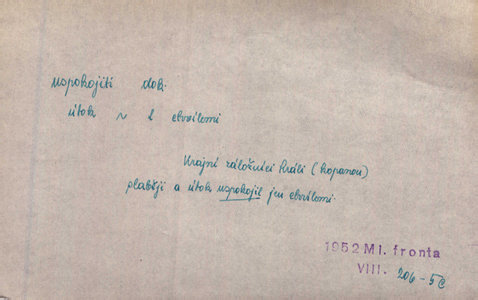 uspokojiti dok.
útok ~ l chvílemi
Krajní záložníci hráli (kopanou)
slaběji a útok uspokojil jen chvílemi.
1952 Ml. fronta
VIII. 206-5c